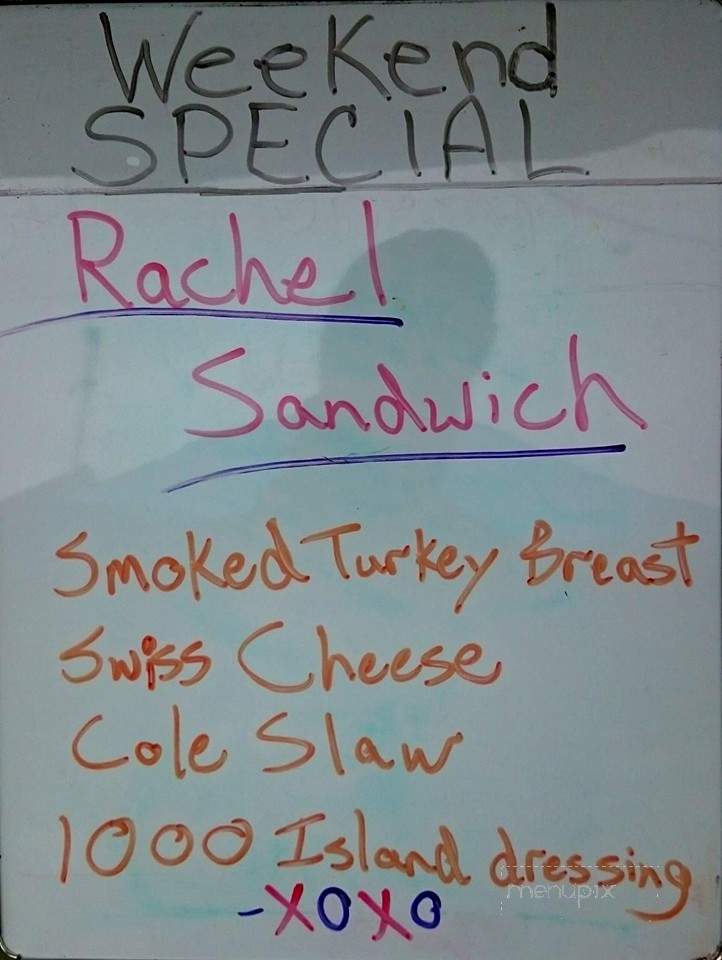 Weekend
SPECIAL
Rachel
Sandwich
Smoked Turkey Breast
Swiss Cheese
Cole Slaw
1000 Island dressing
-XOXO
menupix